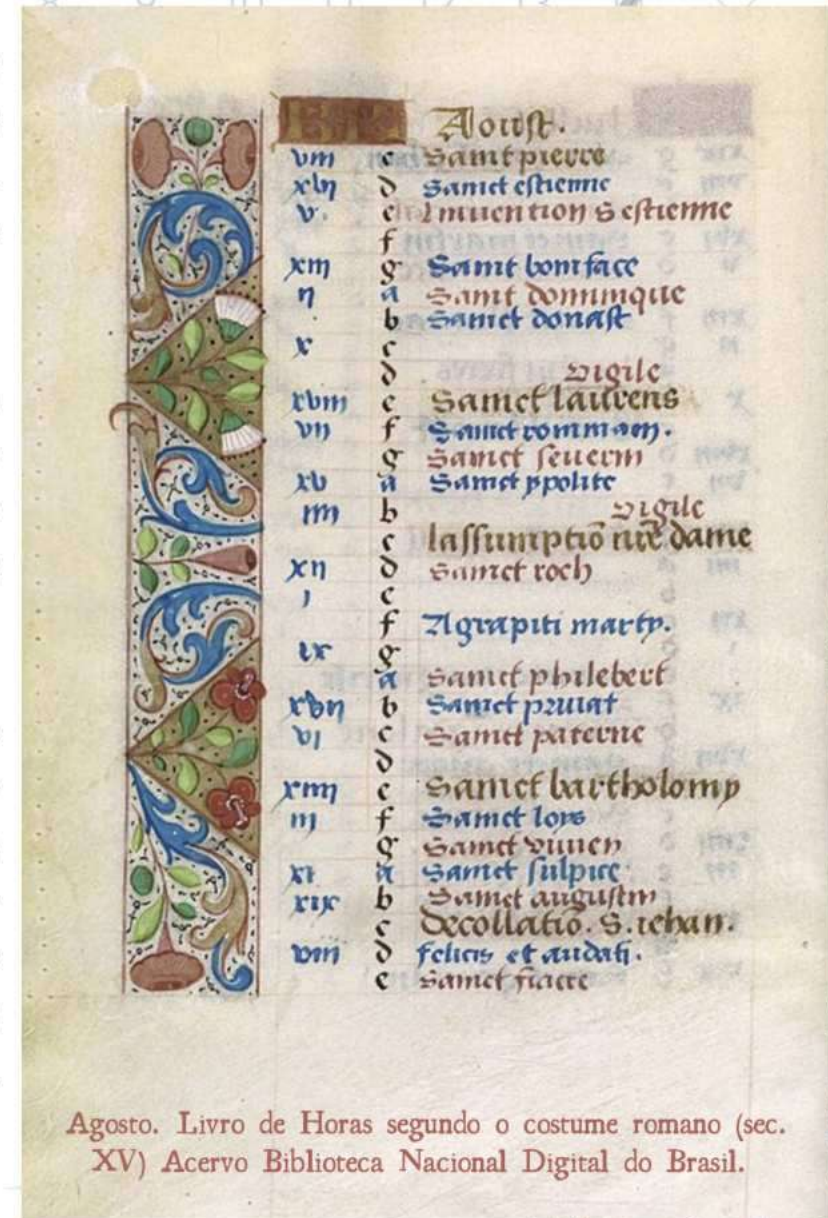 KL Aoust.
viii c Sainct pierre
xvi d Sainct estienne
v. e Linuention S estienne
f
xiii g Sainct boniface
ii a Sainct dominique
. b Sainct donast
x c
d vigile
xviii e Sainct laurens
vii f Sainct rommain.
g Sainct seuerin
xv a Sainct ypolite
iiii b vigile
c lassumptiō nr̄e dame
xii d Sainct roch
i e
f Agrapiti marty.
ix g
a Sainct philebert
xvii b Sainct priuat
vi c Sainct paterne
d
xiiii e Sainct bartholomy
iii f Sainct loys
g Sainct viuien
xi a Sainct sulpice
xix b Sainct augustin
c Decollatiō. S. iehan.
viii d felicis et audati.
e Sainct fiacre
Agosto. Livro de Horas segundo o costume romano (sec.
XV) Acervo Biblioteca Nacional Digital do Brasil.